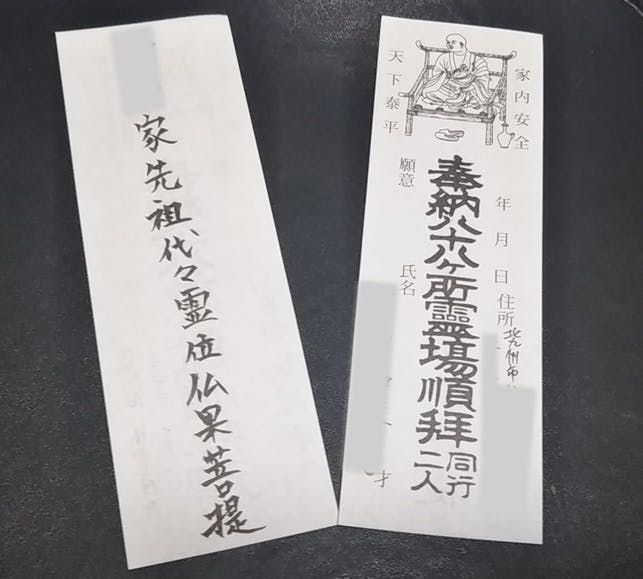 家先祖代々霊位仏果菩提
家内安全
年月日住所北九州市
奉納八十八ヶ所霊場順拝
同行二人
天下泰平
願意
氏名
才